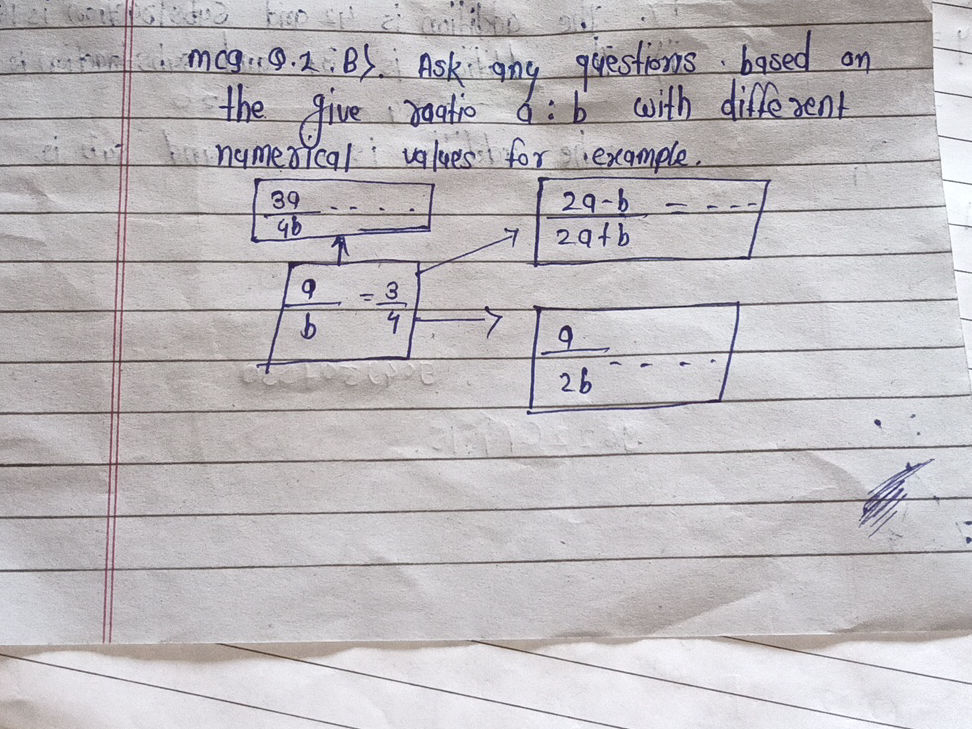 mcq. Q.1. B). Ask any questions based on
the give raatio a : b with different
numerical values for example.
3a
4b - - - -
2a-b
2a+b = - - - -
a
b = 3
4
a
2b - - - -